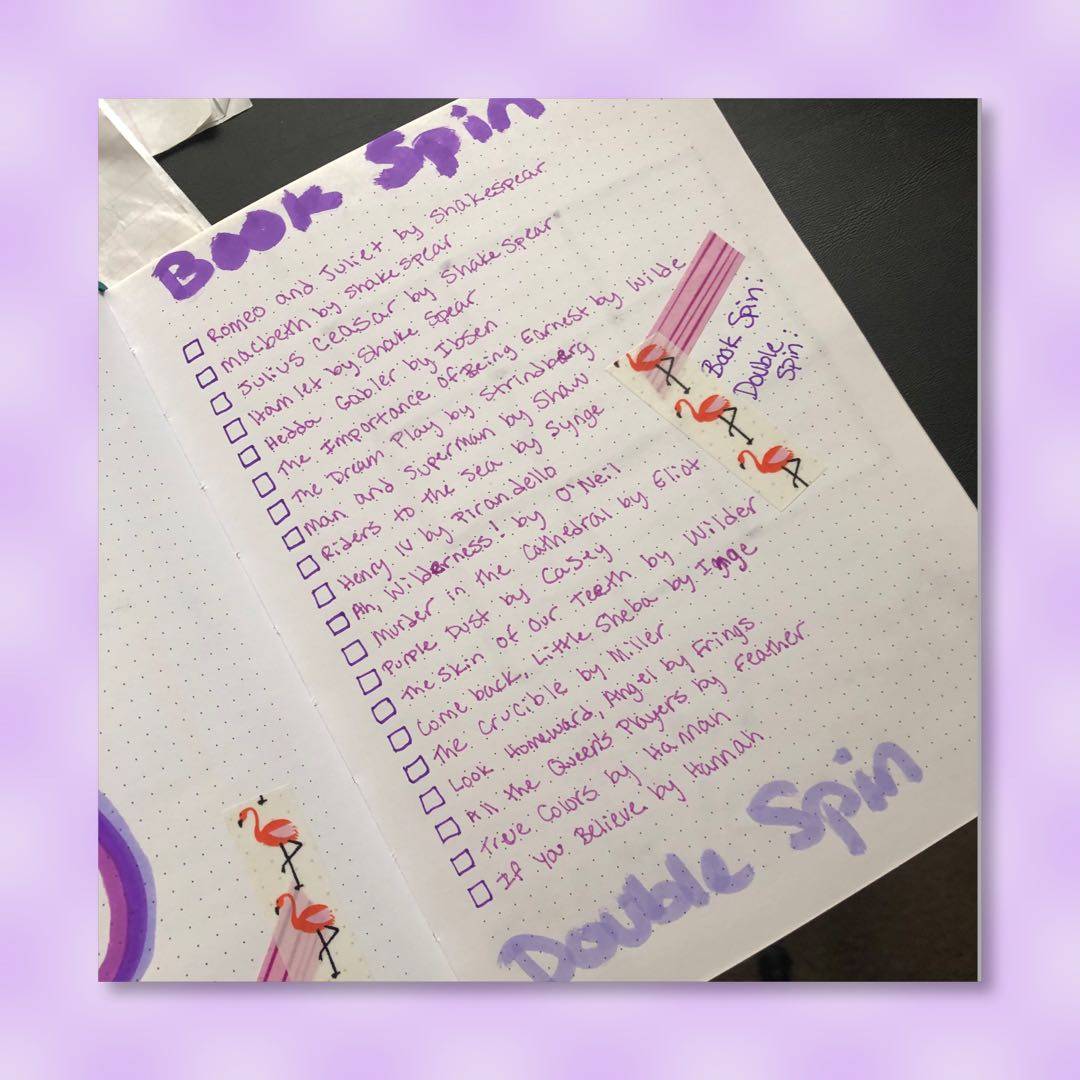 Book Spin
Romeo and Juliet by Shakespear
Macbeth by Shakespear
Julius Ceasar by Shake Spear
Hamlet by Shake Spear
Hedda Gabler by Ibsen
The Importance of Being Earnest by Wilde
The Dream Play by Strindberg
Man and Superman by Shaw
Riders to the Sea by Synge
Henry IV by Pirandello
Ah, Wilderness! by O'Neil
Murder in the Cathedral by Eliot
Purple Dust by Casey
The Skin of Our Teeth by Wilder
Come back, Little Sheba by Inge
The Crucible by Miller
Look Homeward, Angel by Frings
All the Queen's Players by Feather
True Colors by Hannah
If You Believe by Hannah
Book Spin:
Double
Spin:
Double Spin